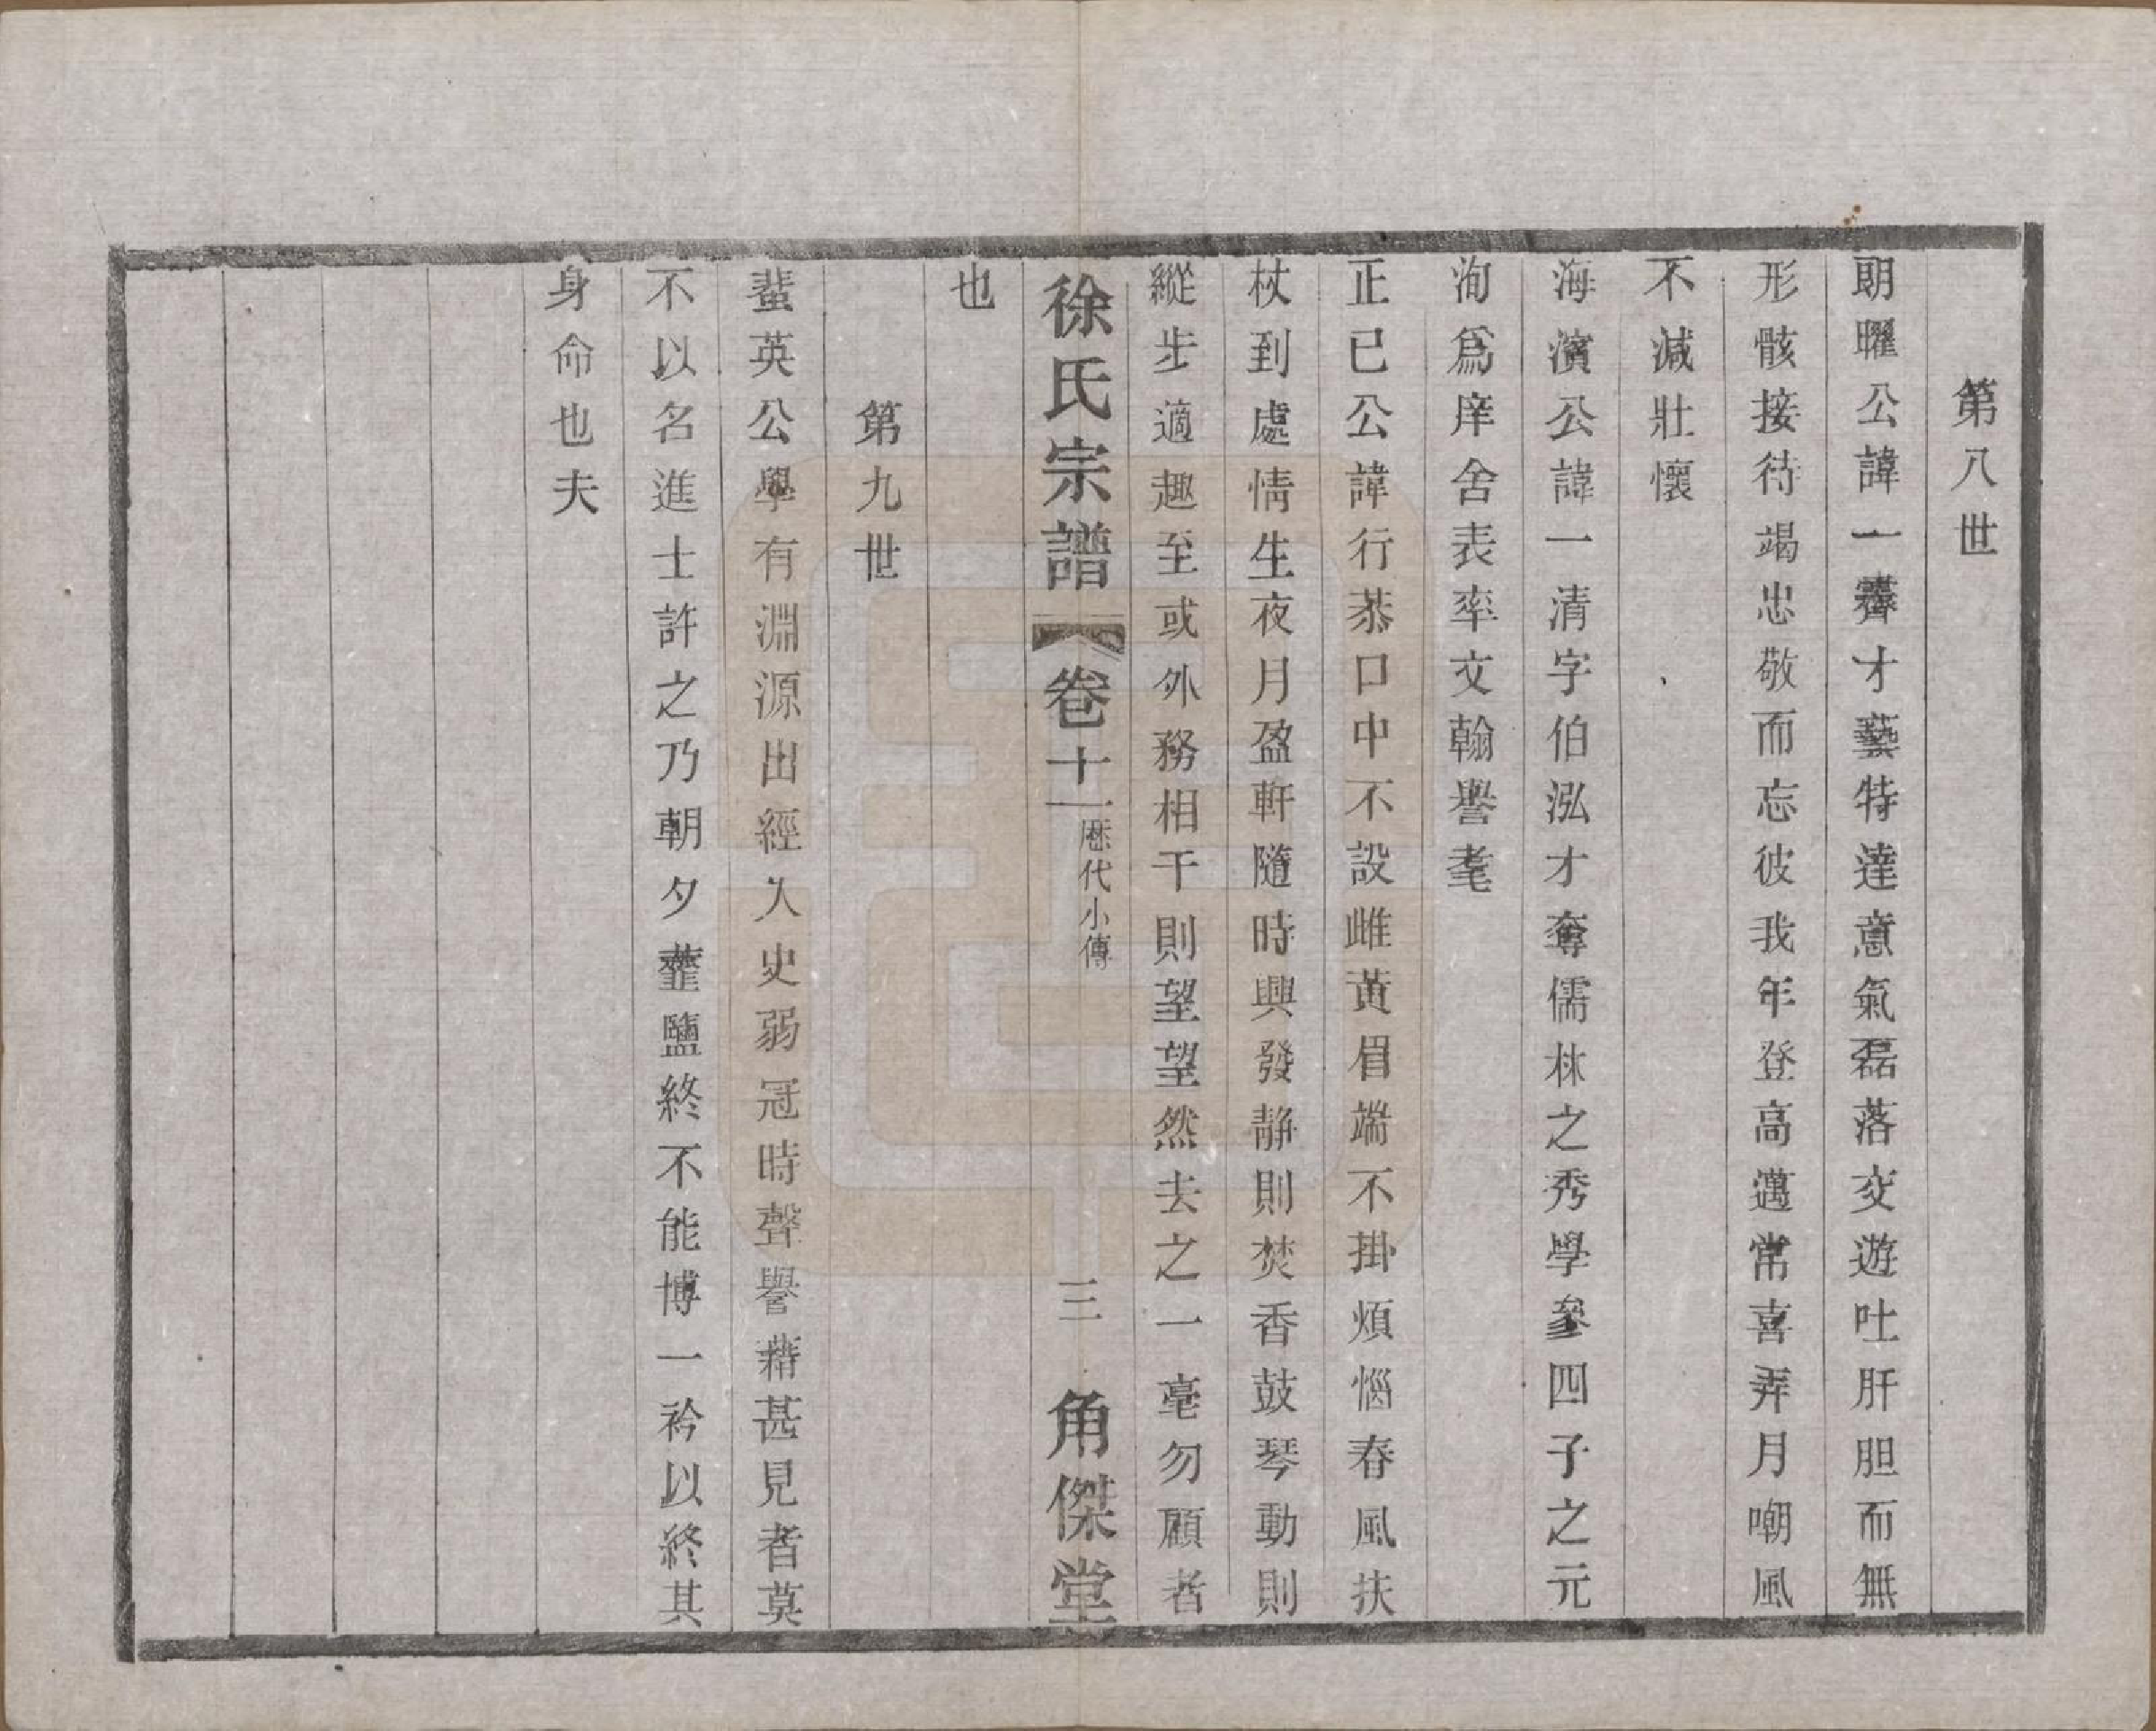 第八世
朗曜公諱一霽才藝特達意氣磊落交遊吐肝胆而無
形骸接待竭忠敬而忘彼我年登高邁常喜弄月嘲風
不減壯懷
海濱公諱一清字伯泓才奪儒林之秀學參四子之元
洵爲庠舍表率文翰譽髦
正已公諱行恭口中不設雌黃眉端不掛煩惱春風扶
杖到處情生夜月盈軒隨時興發靜則焚香鼓琴動則
縱步適趣至或外務相干則望望然去之一毫勿顧者
徐氏宗譜 卷十一 歷代小傳 三 角傑堂
也
第九世
蜚英公學有淵源出經入史弱冠時聲譽藉甚見者莫
不以名進士許之乃朝夕虀鹽終不能博一衿以終其
身命也夫